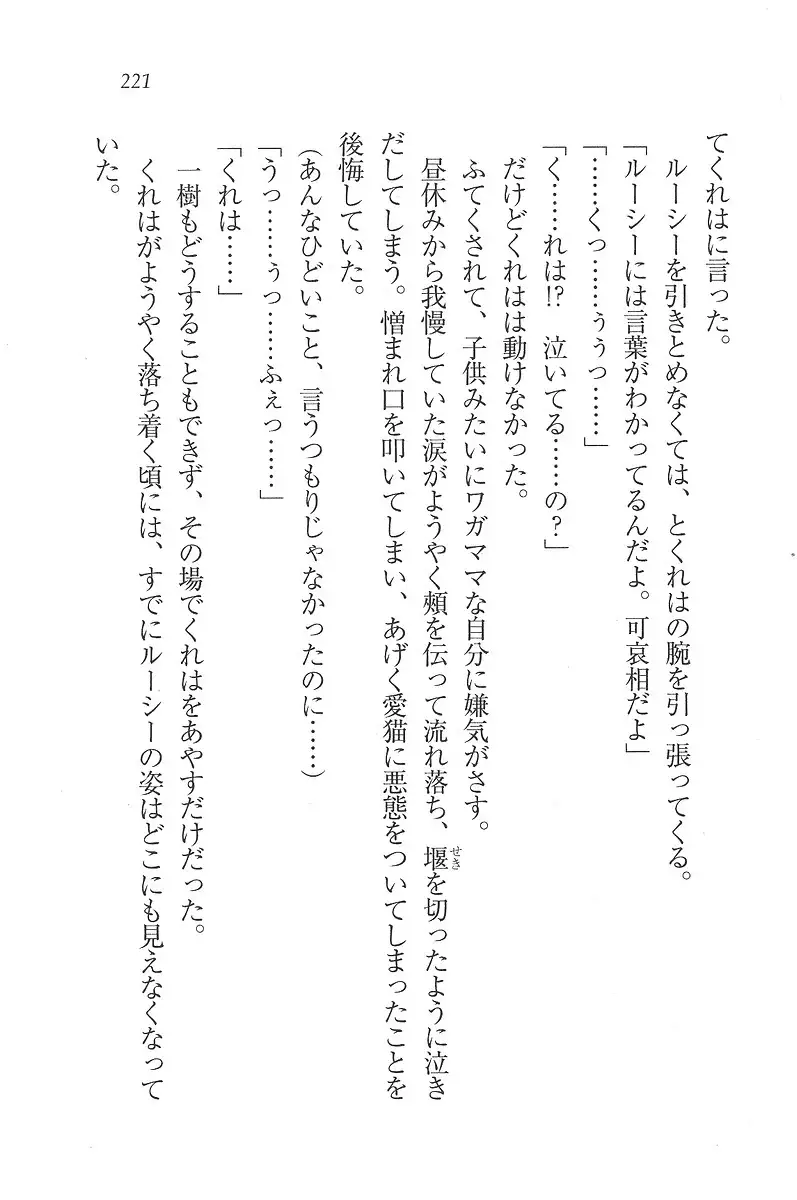 221
てくれはに言った。
ルーシーを引きとめなくては、とくれはの腕を引っ張ってくる。
「ルーシーには言葉がわかってるんだよ。可哀相だよ」
「……くっ……ぅぅっ……」
「く……れは!?　泣いてる……の?」
だけどくれはは動けなかった。
ふてくされて、子供みたいにワガママな自分に嫌気がさす。
昼休みから我慢していた涙がようやく頬を伝って流れ落ち、堰を切ったように泣き
せき
だしてしまう。憎まれ口を叩いてしまい、あげく愛猫に悪態をついてしまったことを
後悔していた。
(あんなひどいこと、言うつもりじゃなかったのに……)
「うっ……ぅっ……ふぇっ……」
「くれは……」
一樹もどうすることもできず、その場でくれはをあやすだけだった。
くれはがようやく落ち着く頃には、すでにルーシーの姿はどこにも見えなくなって
いた。